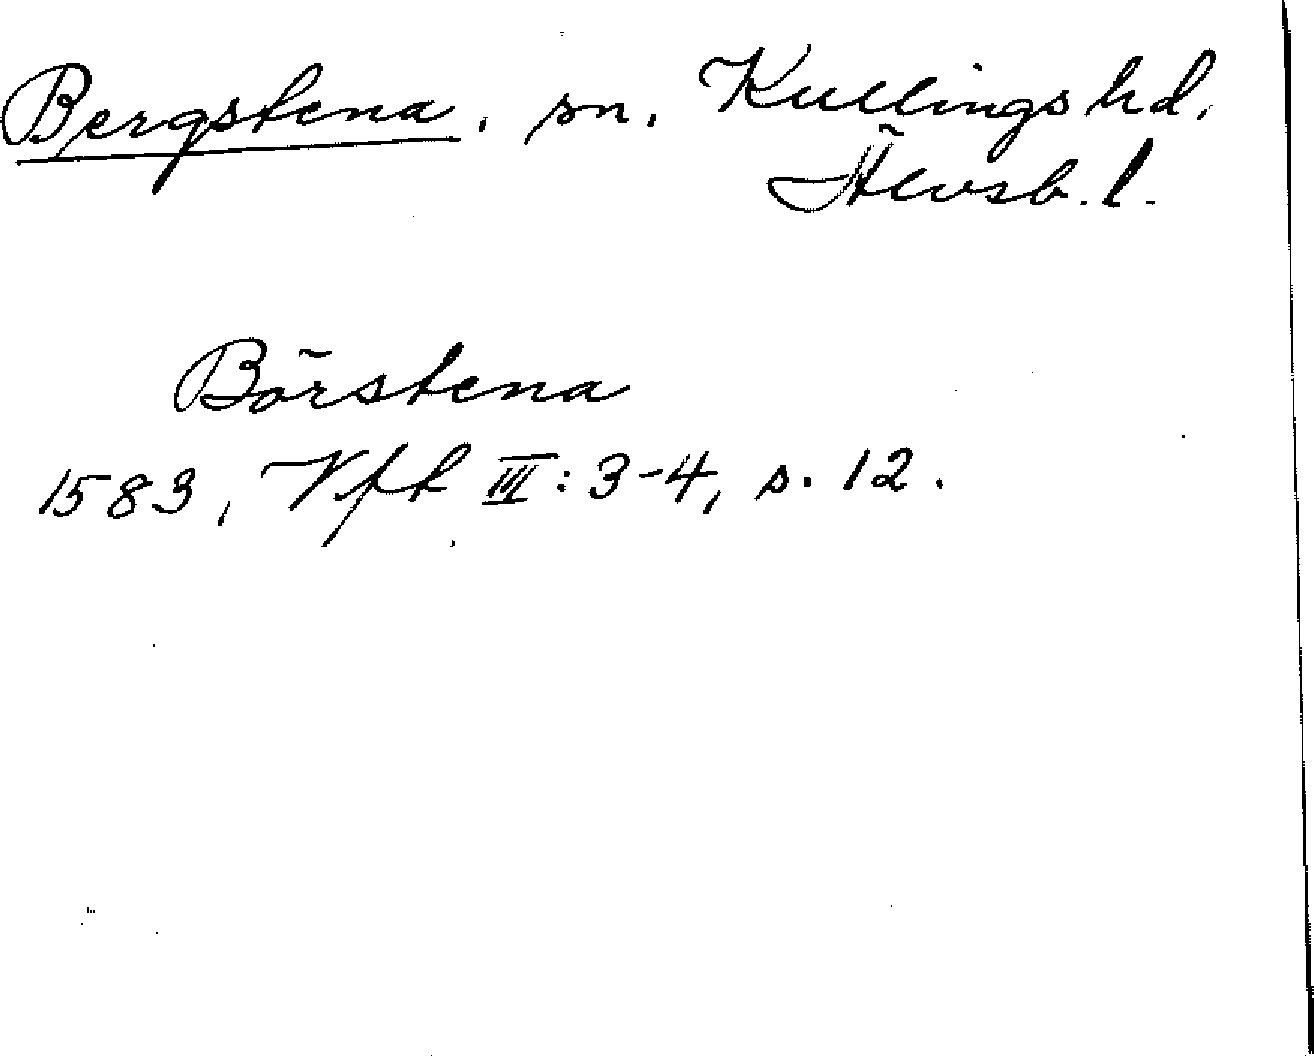 Bergstena, sn. Kullings hd.
Älvsb. l.
Börstena
1583, Vfk III: 3-4, s. 12.